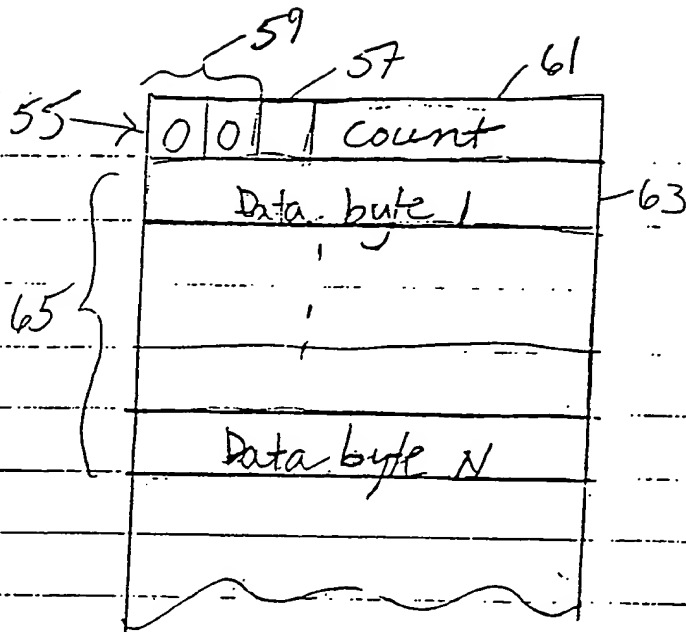 59
57
61
55
0 0 count
Data byte 1
63
65
Data byte N